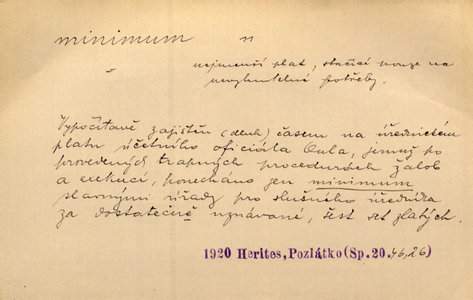 minimum n
=
nejmenší plat, stačící nouze na
nevyhnutelné potřeby.
Vypočítavě zajištěn (dluh) časem na úřednickém
platu účetního oficiála Oula, jemuž po
provedených trapných procedurách žalob
a exekucí, ponecháno jen minimum
slavnými úřady pro slušného úředníka
za dostatečně uznávané, šest set zlatých.
1920 Herites, Pozlátko (Sp. 20. 46, 26)